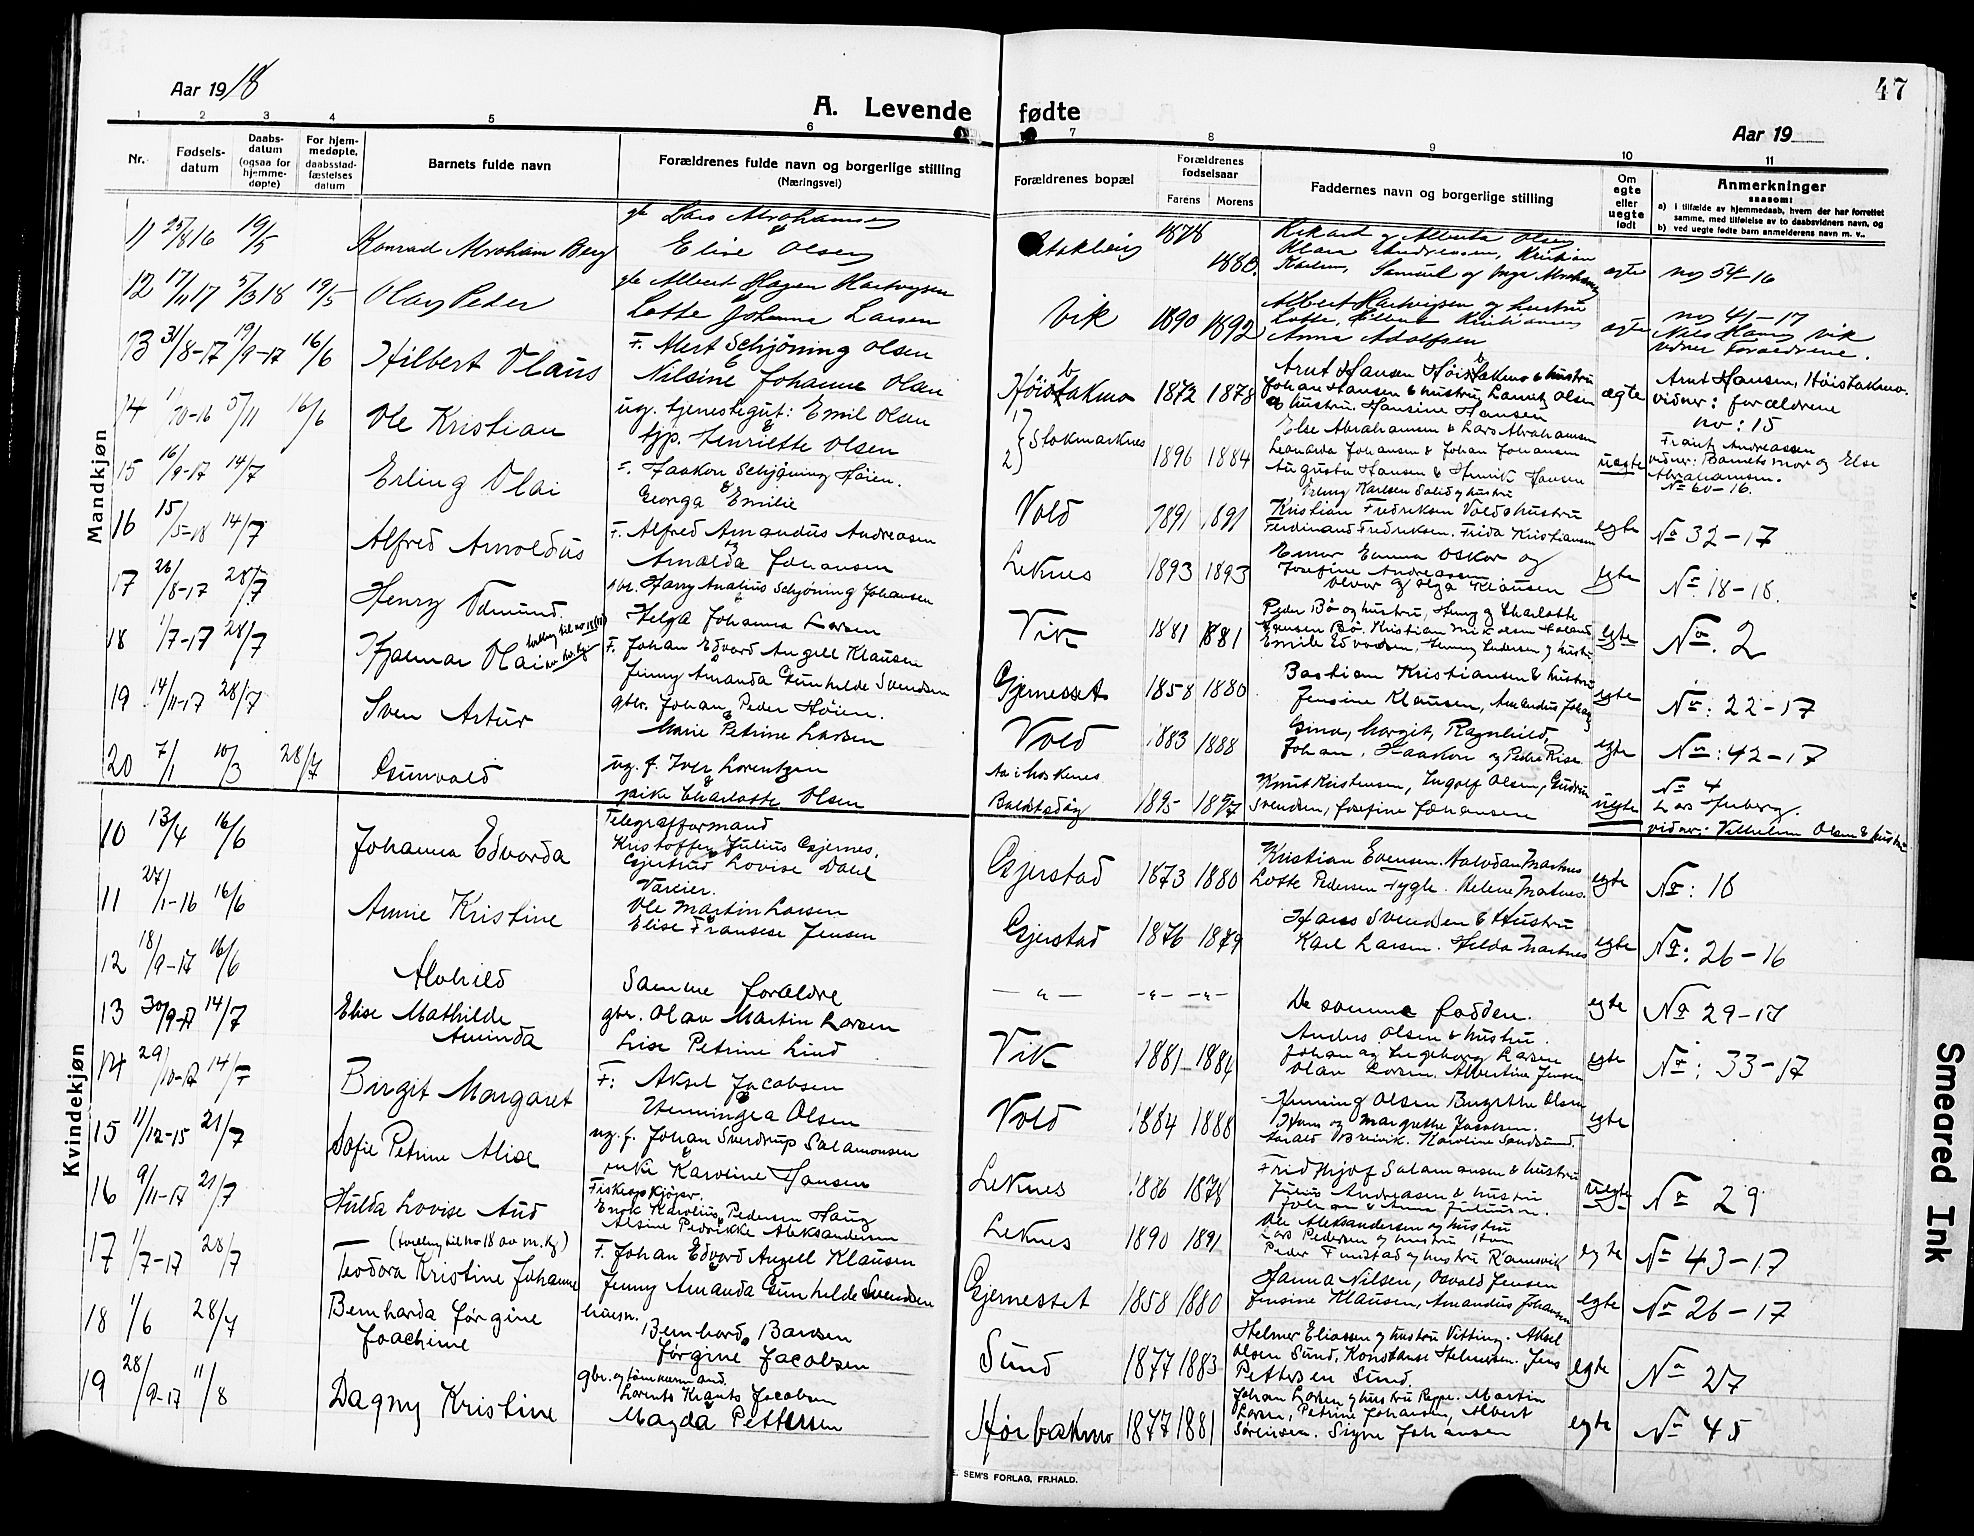 47
Aar 1918
A. Levende fødte
Aar 19
1 2 3 4 5 6 7 8 9 10 11
Nr.
Fødsels-
datum
Daabs-
datum
(ogsaa for
hjemme-
døpte)
For hjem-
medøpte,
daabsstad-
fæstelses
datum
Barnets fulde navn
Forældrenes fulde navn og borgerlige stilling
(Næringsvei)
Forældrenes bopæl
Forældrenes
fødselsaar
Farens Morens
Faddernes navn og borgerlige stilling
Om
egte
eller
uegte
født
Anmerkninger
saasom:
a) i tilfælde av hjemmedaab, hvem der har forrettet
samme, med tilføielse av to daabsvidners navn, og
b) ved uegte født barn anmelderens navn m. v.
Mandkjøn
11 25/8 16 19/5 Konrad Abraham Berg
Lars Abrahamsen
Elise Olsen
1878 1880
egte no 54-16
12 17/11 17 5/3 18 19/5 Olav Peder
Albert Hagen Hartvigsen
Lotte Johanna Larsen
Vik 1890 1892
Albert Hartvigsen og hustru
Lotte, Kristiansen
Anna Adolfsen
egte no 41-17
Nils Hansen Vik
vidner Forældrene.
13 31/8-17 19/9-17 16/6 Hilbert Olaus
F. Mert Schjöning Olsen
Nilsine Johanne Olsen
1872 1878
Arnt Hansen & hustru
Johan Hansen & hustru, Lauritz Olsen
& hustru. Hansine Hansen
egte
Arnt Hansen,
vidner: forældrene
14 1/10-16 5/11 16/6 Ole Kristian
ug. tjenestegut: Emil Olsen
tjp. Henriette Olsen
1) 2) Stokmarknes 1896 1884
Else Abrahamsen & Lars Abrahamsen
Leonarda Johansen & Johan Johansen
Augusta Hansen & Henrik Hansen
uegte
no: 15
Frantz Andreassen
vidner: Barnets mor og Else
Abrahamsen.
No 60-16.
15 16/9-17 14/7 Erling Olai
F. Haakon Schjöning Höien.
Georga & Emilie
Vold 1891 1891
Kristian Fredriksen Vold & hustru
Ferdinand Fredriksen. Frida Kristiansen
egte No 32-17
16 15/5-18 14/7 Alfred Arnoldus
F. Alfred Amandus Andreasen
Arnalda Johansen
Leknes 1893 1893
Einar Emma Oskar og
Josefine Andreassen
Olvar og Olga Klausen
egte No 18-18.
17 26/8-17 28/7 Henry Edmund.
Harry Analius Schjöning Johansen
Helga Johanna Larsen
Vik 1881 1881
Peder Bö og hustru, Henry og Charlotte
egte No. 2
18 1/7-17 28/7 Hjalmar Olai
F. Johan Edvard Angell Klausen
Jenny Amanda Gunhilde Svendsen
Gjernesset 1858 1880
Bastian Kristiansen & hustru
Jensine Klausen, Amandus Johansen
egte No: 22-17
19 14/11-17 28/7 Sven Artur
gbr. Johan Peder Höien.
Marie Petrine Larsen
Vold 1883 1888
Gina, Margit, Ragnhild,
Johan, Haakon og Peder Rise.
egte No: 42-17
20 7/1 10/3 28/7 Gunvald
ug. f. Iver Lorentzen
pike Charlotte Olsen
1895 1897
Knut Kristensen, Ingolf Olsen, Gudrun
Svendsen, Josefine Johansen
uegte No 4
vidner: Vilhelm Olsen & hustru
Kvindekjøn
10 13/4 16/6 Johanna Edvarda
Telegrafformand
Kristoffer Julius Gjernes.
Gjertrud Lovise Dahl
Gjerstad 1873 1880
Kristian Evensen. Halvdan Martnes
Lotte Pedersen Tygle. Helene Martnes.
egte No: 18
11 27/1-16 16/6 Annie Kristine
Ole Martin Larsen
Elise Fransese Jensen
Gjerstad 1876 1879
Hans Svendsen & Hustru
Karl Larsen. Hilda Martnes
egte No: 26-16
12 18/9-17 16/6 Alvhild
Samme forældre
— " — -"- -"-
De samme faddere.
egte No 29-17
13 30/9-17 14/7 Elise Mathilde
Aminda
gbr. Olav Martin Larsen
Lise Petrine Lind
Vik 1881 1884
Anders Olsen & hustru.
Johan og Ingeborg Larsen
Olav Larsen. Albertine Jensen
egte No: 33-17
14 29/10-17 14/7 Birgit Margaret
F: Aksel Jacobsen
Henningea Olsen
Vold 1884 1888
Henning Olsen Birgitte Olsen
Hans og Margrethe Jacobsen.
egte
15 11/12-15 21/7 Sofie Petrine Alise
ug. f. Johan Sverdrup Salamonsen
enke Karoline Hansen
Leknes 1886 1878
Fridthjof Salamonsen & hustru
Julius Andreasen & hustru
uegte No 29
16 9/11-17 21/7 Hulda Lovise Aud
Fiskeopkjöper.
Enok Karolius Pedersen Haug
Alsine Pedrikke Aleksandersen
Leknes 1890 1891
Ole Aleksandersen og hustru
Lars Pedersen og hustru
Peder Finstad og hustru Ramsvik
egte No 43-17
17 1/7-17 28/7 (tvilling til no 18 av m. kj)
Teodora Kristine Johanne
F. Johan Edvard Angell Klausen
Jenny Amanda Gunhilde Svendsen
Gjernesset 1858 1880
Hanna Nilsen, Osvald Jensen
Jensine Klausen, Amandus Johansen
egte No 26-17
18 1/6 28/7 Bernharda Jörgine
Joachime
husm.
Bernhard Bardsen
Jörgine Jacobsen
Sund 1877 1883
Helmer Eliassen og hustru Vitting. Aksel
Olsen Sund, Konstanse Helmersen. Jens
Pettersen Sund.
egte No 27
19 28/9-17 11/8 Dagny Kristine
gbr. og tömmermand.
Lorents Krants Jacobsen
Magda Pettersen
1877 1881
Johan Larsen og hustru Reppe. Martin
Larsen, Petrine Johansen, Albert
Sörensen. Signe Johansen
egte No 45
E. SEM'S FORLAG, FR.HALD.
Smeared Ink